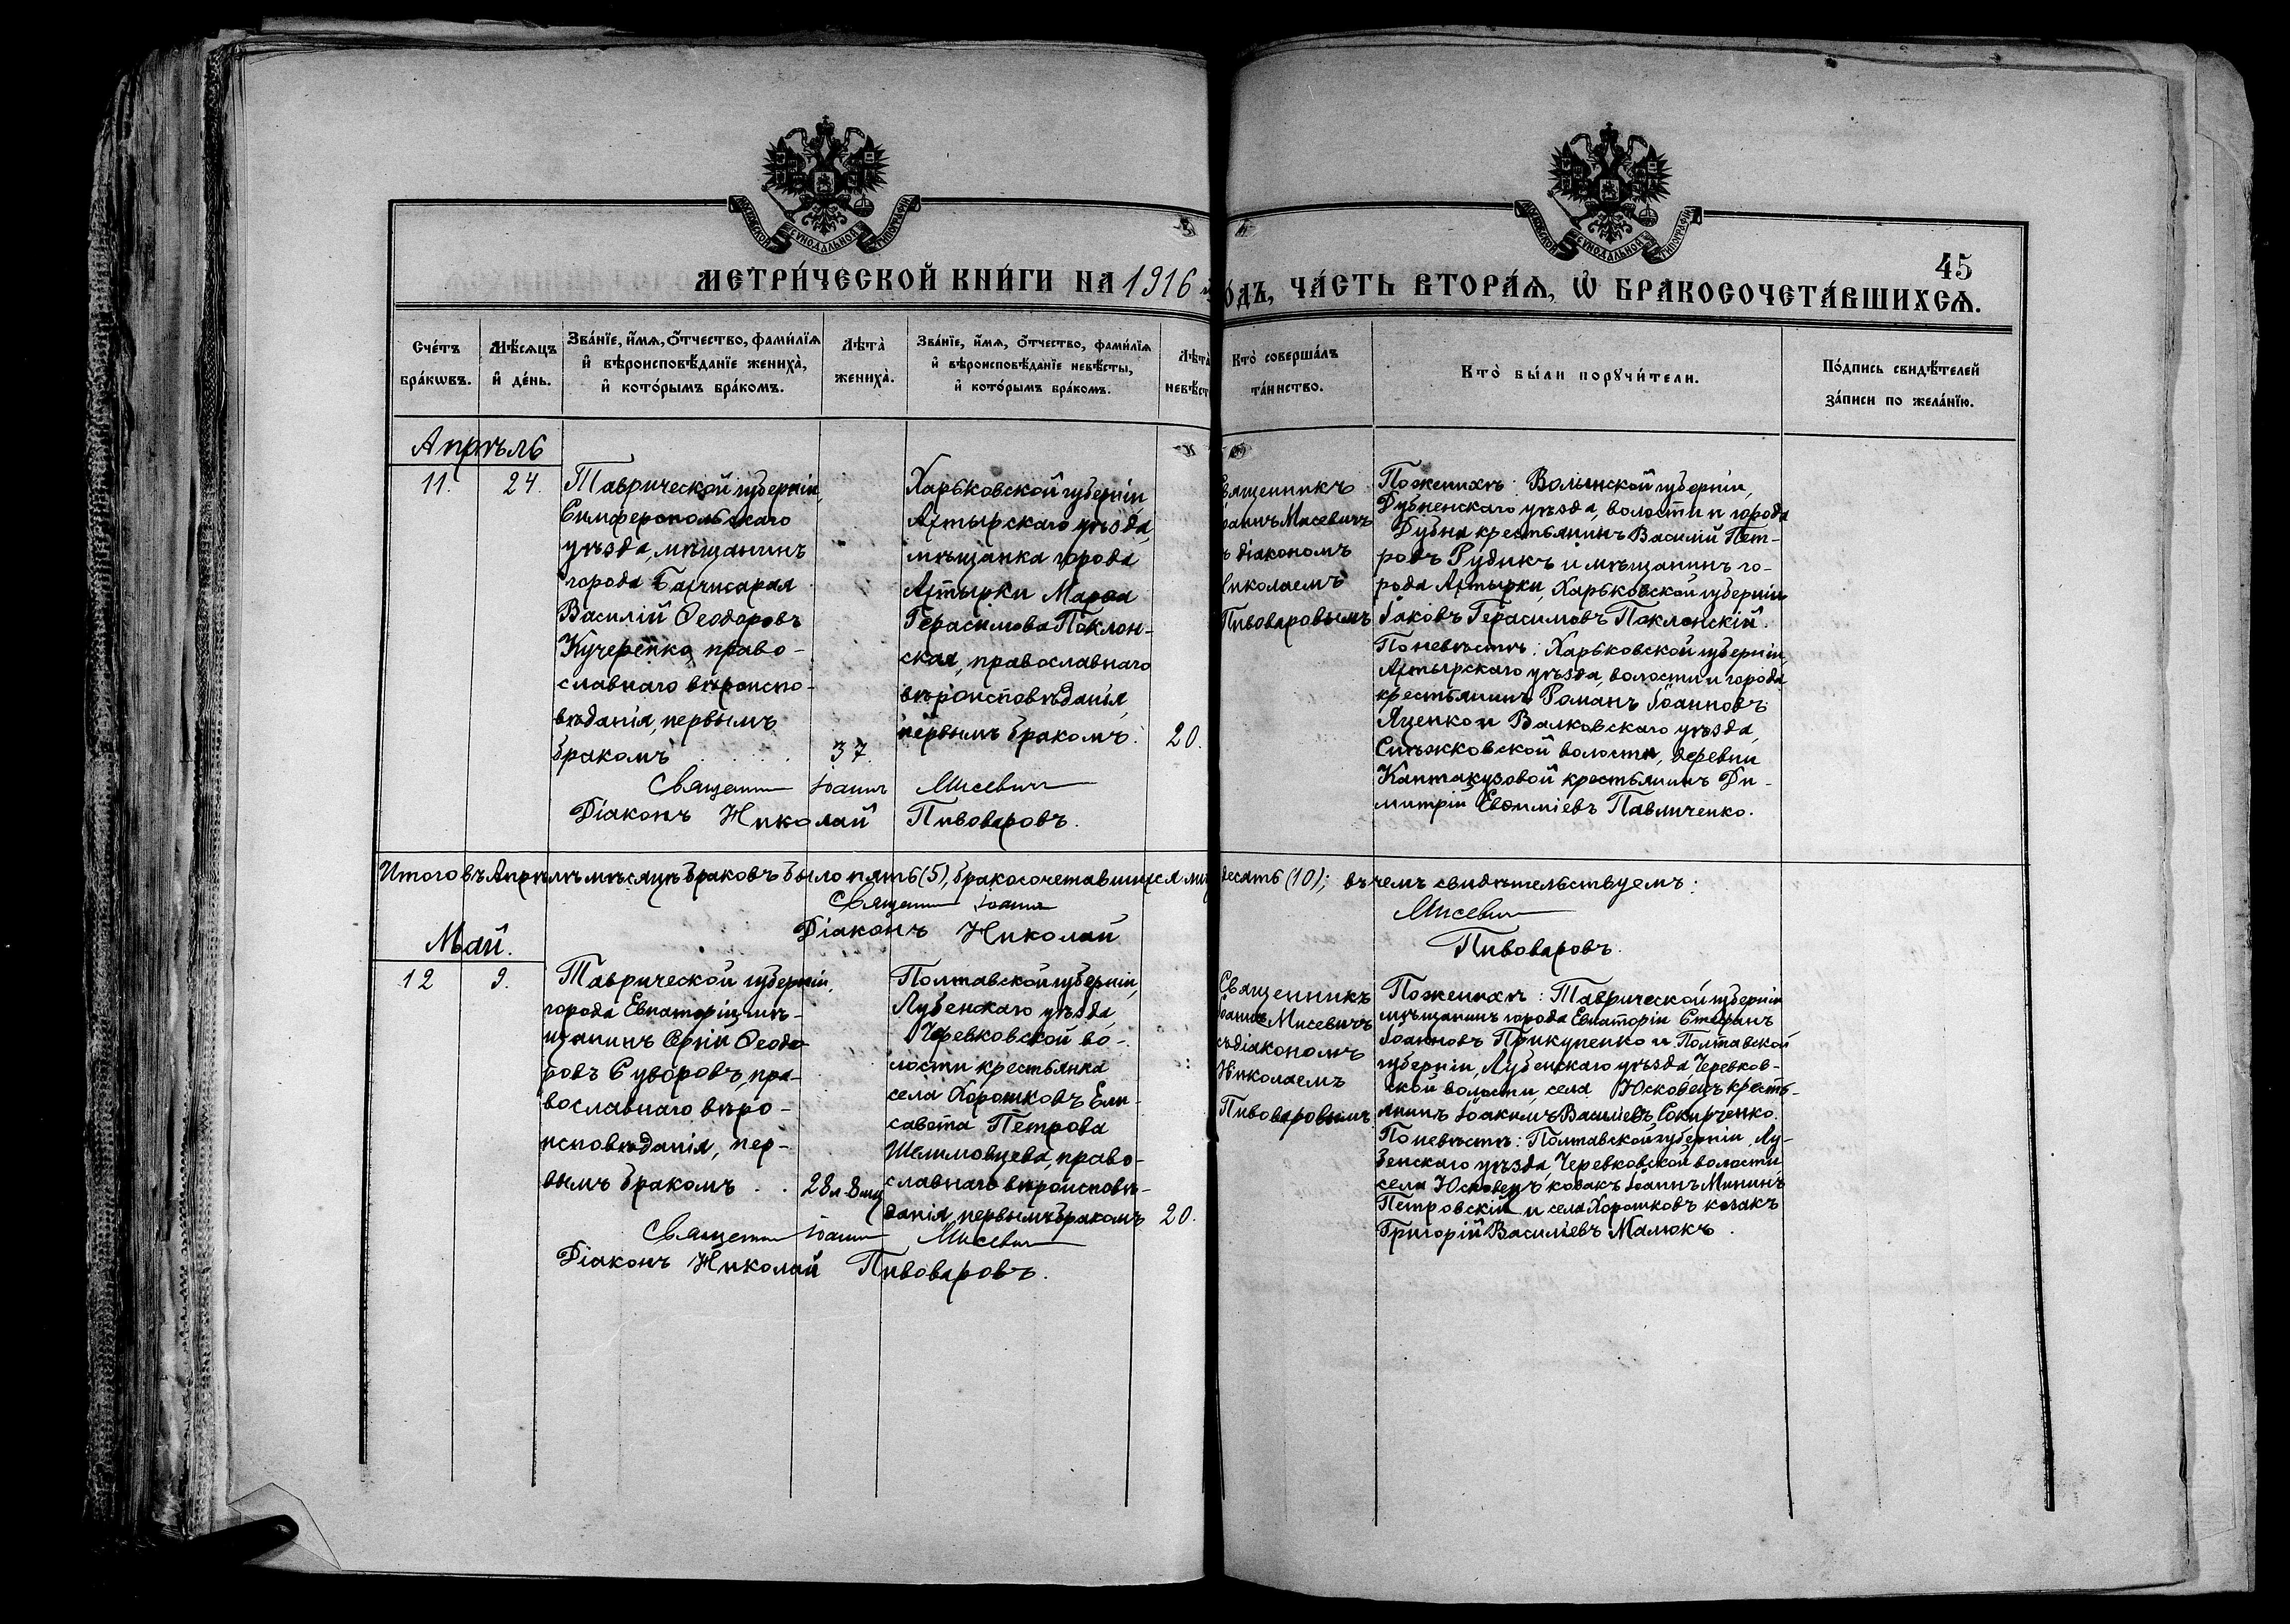 МОСКОВСКОЙ СѴНОДАЛЬНОЙ ТИПОГРАФІИ
МОСКОВСКОЙ СѴНОДАЛЬНОЙ ТИПОГРАФІИ
45
МЕТРИ́ЧЕСКОЙ КНИ́ГИ НА 1916
О́ДЪ, ЧА́СТЬ ВТОРА́Ѧ, Ѡ҆ БРАКОСОЧЕТА́ВШИХСѦ.
Сче́тъ
бра́кѡвъ.
Мѣ́сѧцъ
и҆ де́нь.
Зва́нїе, и҆́мѧ, ѻ҆́тчество, фами́лїѧ
и҆ вѣроисповѣ́данїе жениха̀,
и҆ кото́рымъ бра́комъ.
Лѣ́та̀
жениха̀.
Зва́нїе, и҆́мѧ, ѻ҆́тчество, фами́лїѧ
и҆ вѣроисповѣ́данїе невѣ́сты,
и҆ кото́рымъ бра́комъ.
Лѣта̀
невѣ́ст
Кто̀ соверша́лъ
та́инство.
Кто̀ бы́ли порꙋчи́тели.
По́дпись свидѣ́телей
за́писи по жела́нїю.
Апрѣль
11.
24.
Таврической губерніи,
Симферопольскаго
уѣзда, мѣщанинъ
города Бахчисарая
Василій Ѳеодоровъ
Кучеренко, право-
славнаго вѣроиспо-
вѣданія, первымъ
бракомъ
37.
Харьковской губерніи
Ахтырскаго уѣзда,
мѣщанка города
Ахтырки Марѳа
Герасимова Поклон-
ская, православнаго
вѣроисповѣданія,
первымъ бракомъ.
20.
вященникъ
оаннъ Мисевичъ
ъ діакономъ
иколаемъ
Пивоваровымъ
По женихѣ: Волынской губерніи,
Дубненскаго уѣзда, волости и города
Дубна крестьянинъ Василій Пет-
ровъ Рудикъ и мѣщанинъ го-
рода Ахтырки, Харьковской губерніи
Іаковъ Герасимовъ Поклонскій.
По невѣстѣ: Харьковской губерніи,
Ахтырскаго уѣзда, волости и города
крестьянинъ Романъ Іоанновъ
Яценко и Валковскаго уѣзда,
Снѣжковской волости, деревни
Кантакузовой крестьянинъ Ди-
митрій Евѳиміевъ Павличенко.
Священникъ Іоаннъ Мисевичъ
Діаконъ Николай Пивоваровъ.
Итого въ Апрѣлѣ мѣсяцѣ браковъ было пять (5), бракосочетавшихся
десять (10); въ чемъ свидѣтельствуемъ:
Священникъ Іоаннъ Мисевичъ
Діаконъ Николай Пивоваровъ.
Май.
12
9.
Таврической губерніи,
города Евпаторіи мѣ-
щанинъ Сергій Ѳеодо
ровъ Суворовъ, пра-
вославнаго вѣро-
исповѣданія, пер-
вымъ бракомъ
28 л. 8 мц
Полтавской губерніи,
Лубенскаго уѣзда,
Черевковской во-
лости крестьянка
села Хорошковъ Ели-
савета Петрова
Шелимовцева, право-
славнаго вѣроисповѣ-
данія, первымъ бракомъ
20.
Священникъ
Іоаннъ Мисевичъ
съ діакономъ
Николаемъ
Пивоваровымъ
По женихѣ: Таврической губерніи
мѣщанинъ города Евпаторіи Стефанъ
Іоанновъ Прикупенко и Полтавской
губерніи, Лубенскаго уѣзда, Черевков-
ской волости, села Юсковецъ кресть-
янинъ Іоакимъ Васильевъ Сокирченко.
По невѣстѣ: Полтавской губерніи, Лу-
бенскаго уѣзда, Черевковской волости
села Юсковецъ козакъ Іоаннъ Мининъ
Петровскій и села Хорошковъ козакъ
Григорій Васильевъ Малюкъ.
Священникъ Іоаннъ Мисевичъ
Діаконъ Николай Пивоваровъ.